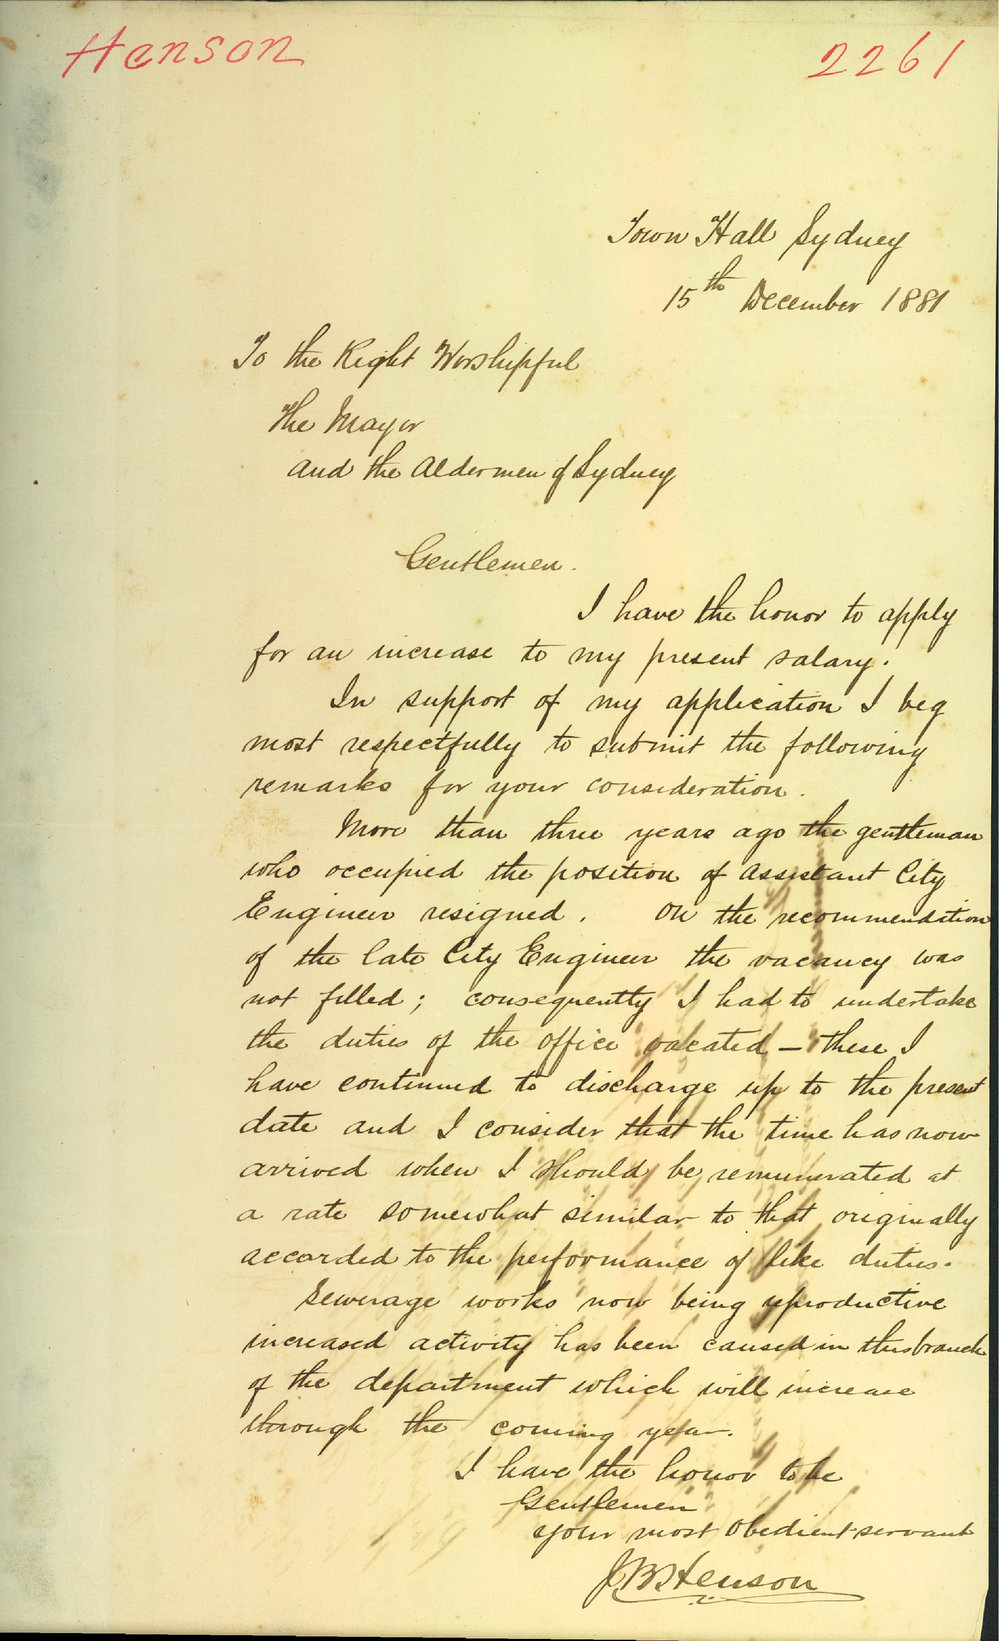 Henson
2261
Town Hall Sydney
15th December 1881
To the Right Worshipful
The Mayor
and the Aldermen of Sydney
Gentlemen.
I have the honor to apply
for an increase to my present salary.
In support of my application I beg
most respectfully to submit the following
remarks for your consideration.
More than three years ago the gentleman
who occupied the position of Assistant City
Engineer resigned. On the recommendation
of the late City Engineer the vacancy was
not filled; consequently I had to undertake
the duties of the office vacated – these I
have continued to discharge up to the present
date and I consider that the time has now
arrived when I should be remunerated at
a rate somewhat similar to that originally
accorded to the performance of like duties.
Sewerage works now being reproductive
increased activity has been caused in this branch
of the department which will increase
through the coming year.
I have the honor to be
Gentlemen
your most obedient servant
J B Henson